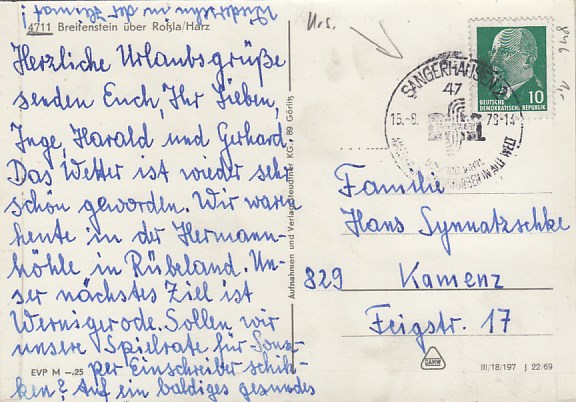 4711 Breitenstein über Roßla/Harz
Herzliche Urlaubsgrüße
senden Euch, Ihr Lieben,
Inge, Harald und Gerhard.
Das Wetter ist wieder sehr
schön geworden. Wir waren
heute in der Hermann-
höhle in Rübeland. Un-
ser nächstes Ziel ist
Wernigerode. Sollen wir
unsere Spielrate für Sona-
per Einschreiber schik-
ken? Auf ein baldiges gesundes
Wiedersehn in der Heimat!
EVP M –.25
Aufnahmen und Verlag Neudiner KG., 89 Görlitz
SANGERHAUSEN
47
15.-8. 73-14
IN ALLER WELT
DEUTSCHE
DEMOKRATISCHE REPUBLIK
10
Familie
Hans Synnatzschke
829 Kamenz
Feigstr. 17
III/18/197 J 22/69